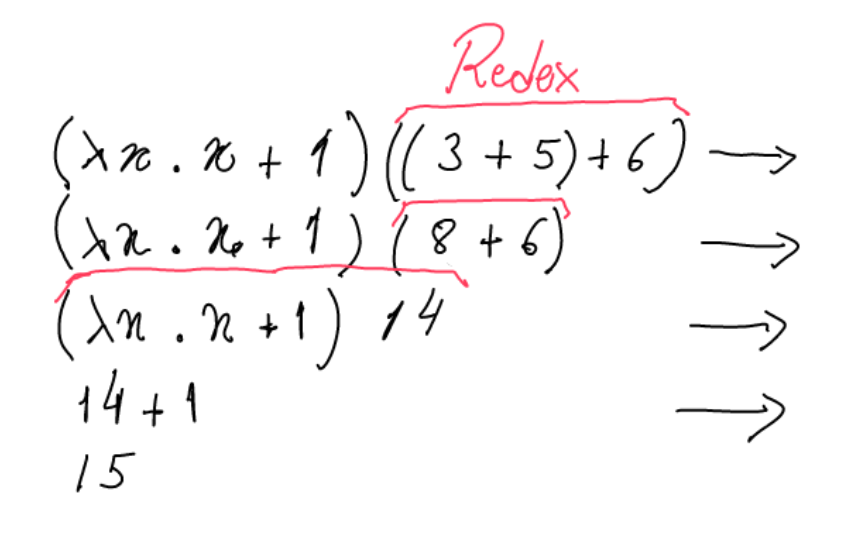 Redex
(λx . x + 1) ((3 + 5) + 6) →
(λx . x + 1) (8 + 6) →
(λx . x + 1) 14 →
14 + 1 →
15